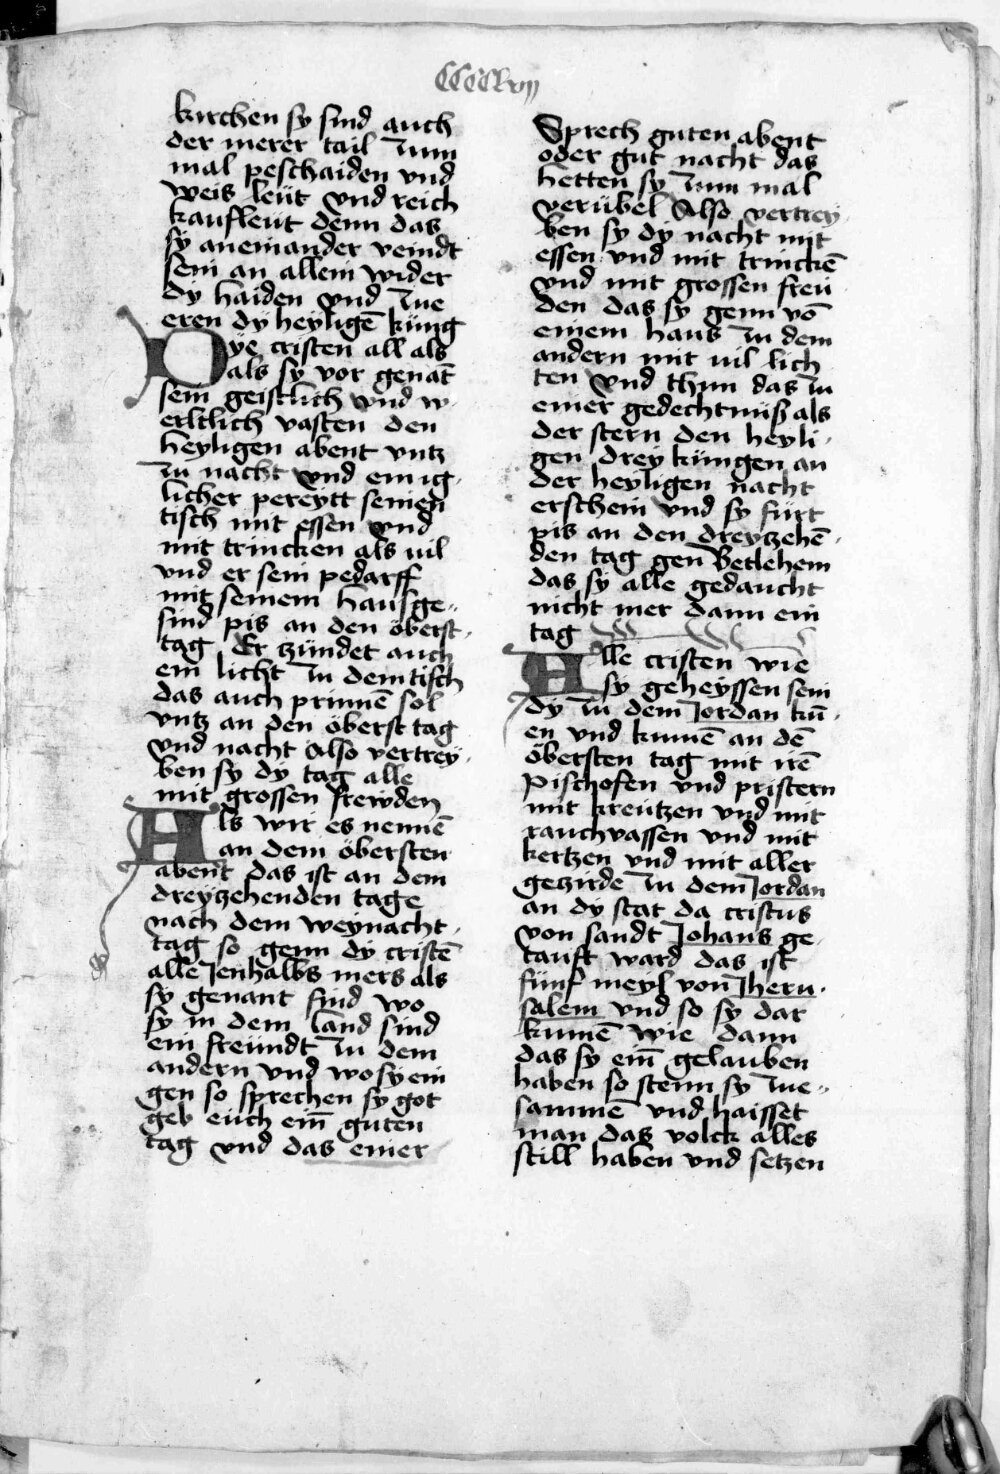 CCCClvij
kirchen sy sind auch
der merer tail zum
mal peschaiden vnd
weis leüt vnd reich
kaufleut denn das
sy aneinander veindt
sein an allem wider
dy haiden vnd zue
eren dy heyligē küng
Dye cristen all als
als sy vor genāt
sein geistlich vnd w
erltlich vasten den
heyligen abent vntz
zu nacht vnd ein ig
licher pereytt seinen
tisch mit essen vnd
mit trincken als uil
vnd er sein pedarff
mit seinem hausge-
sind pis an den öberst
tag Er zündet auch
ein licht zu dem tisch
das auch prinnē sol
vntz an den öberst tag
vnd nacht Also vertrey-
ben sy dy tag alle
mit grossen frewden
Als wir es nennē
an dem öbersten
abent das ist an dem
dreyzehenden tage
nach dem weynacht
tag so genn dy cristē
alle Jenhalbs mers als
sy genant sind wo
sy in dem land sind
ein freündt zu dem
andern vnd wo sy ein
gen so sprechen sy got
geb eüch ein̄ guten
tag vnd das einer
Sprech guten abent
oder gut nacht das
hetten sy zum mal
verübel Also vertrey
ben sy dy nacht mit
essen vnd mit trinckē
vnd mit grossen freü
den das sy genn vō
einem haus zu dem
andern mit uil lich
ten vnd thun das zu
einer gedechtnüß als
der stern den heyli-
gen drey künigen an
der heyligen nacht
erschein vnd sy fürt
pis an den dreyzehē-
den tag gen Betlehem
das sy alle gedaucht
nicht mer dann ein
tag
Alle cristen wie
sy geheyssen sein
dy zu dem Jordan kū-
en vnd kumē an dē
öbersten tag mit irē
Pischofen vnd pristern
mit kreützen vnd mit
rauchvassen vnd mit
kertzen vnd mit aller
gezirde zu dem Jordan
an dy stat da cristus
von sandt Johans ge-
tauft ward das ist
fünf meyl von Jheru-
salem vnd so sy dar
kumē wie dann
das sy ein̄ gelauben
haben so stenn sy zue-
sammē vnd haisset
man das volck alles
still haben vnd setzen